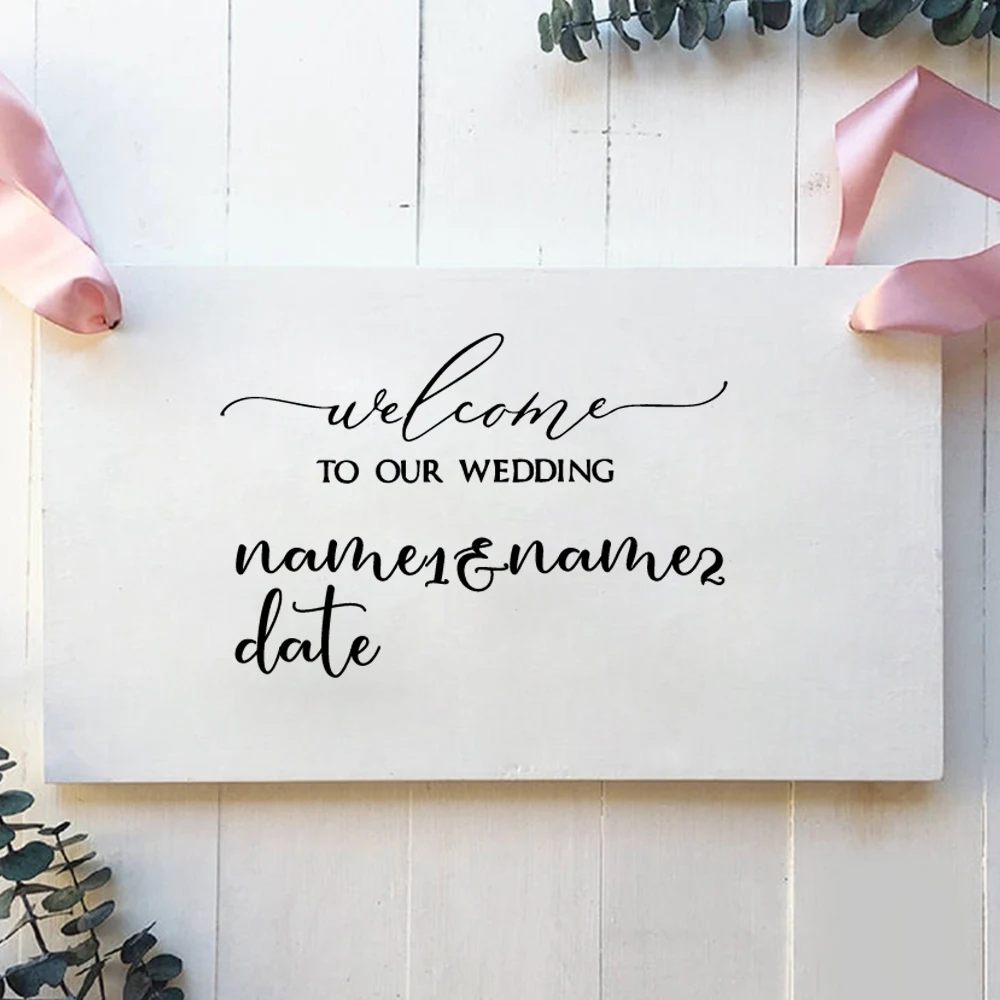 welcome
TO OUR WEDDING
name1&name2
date